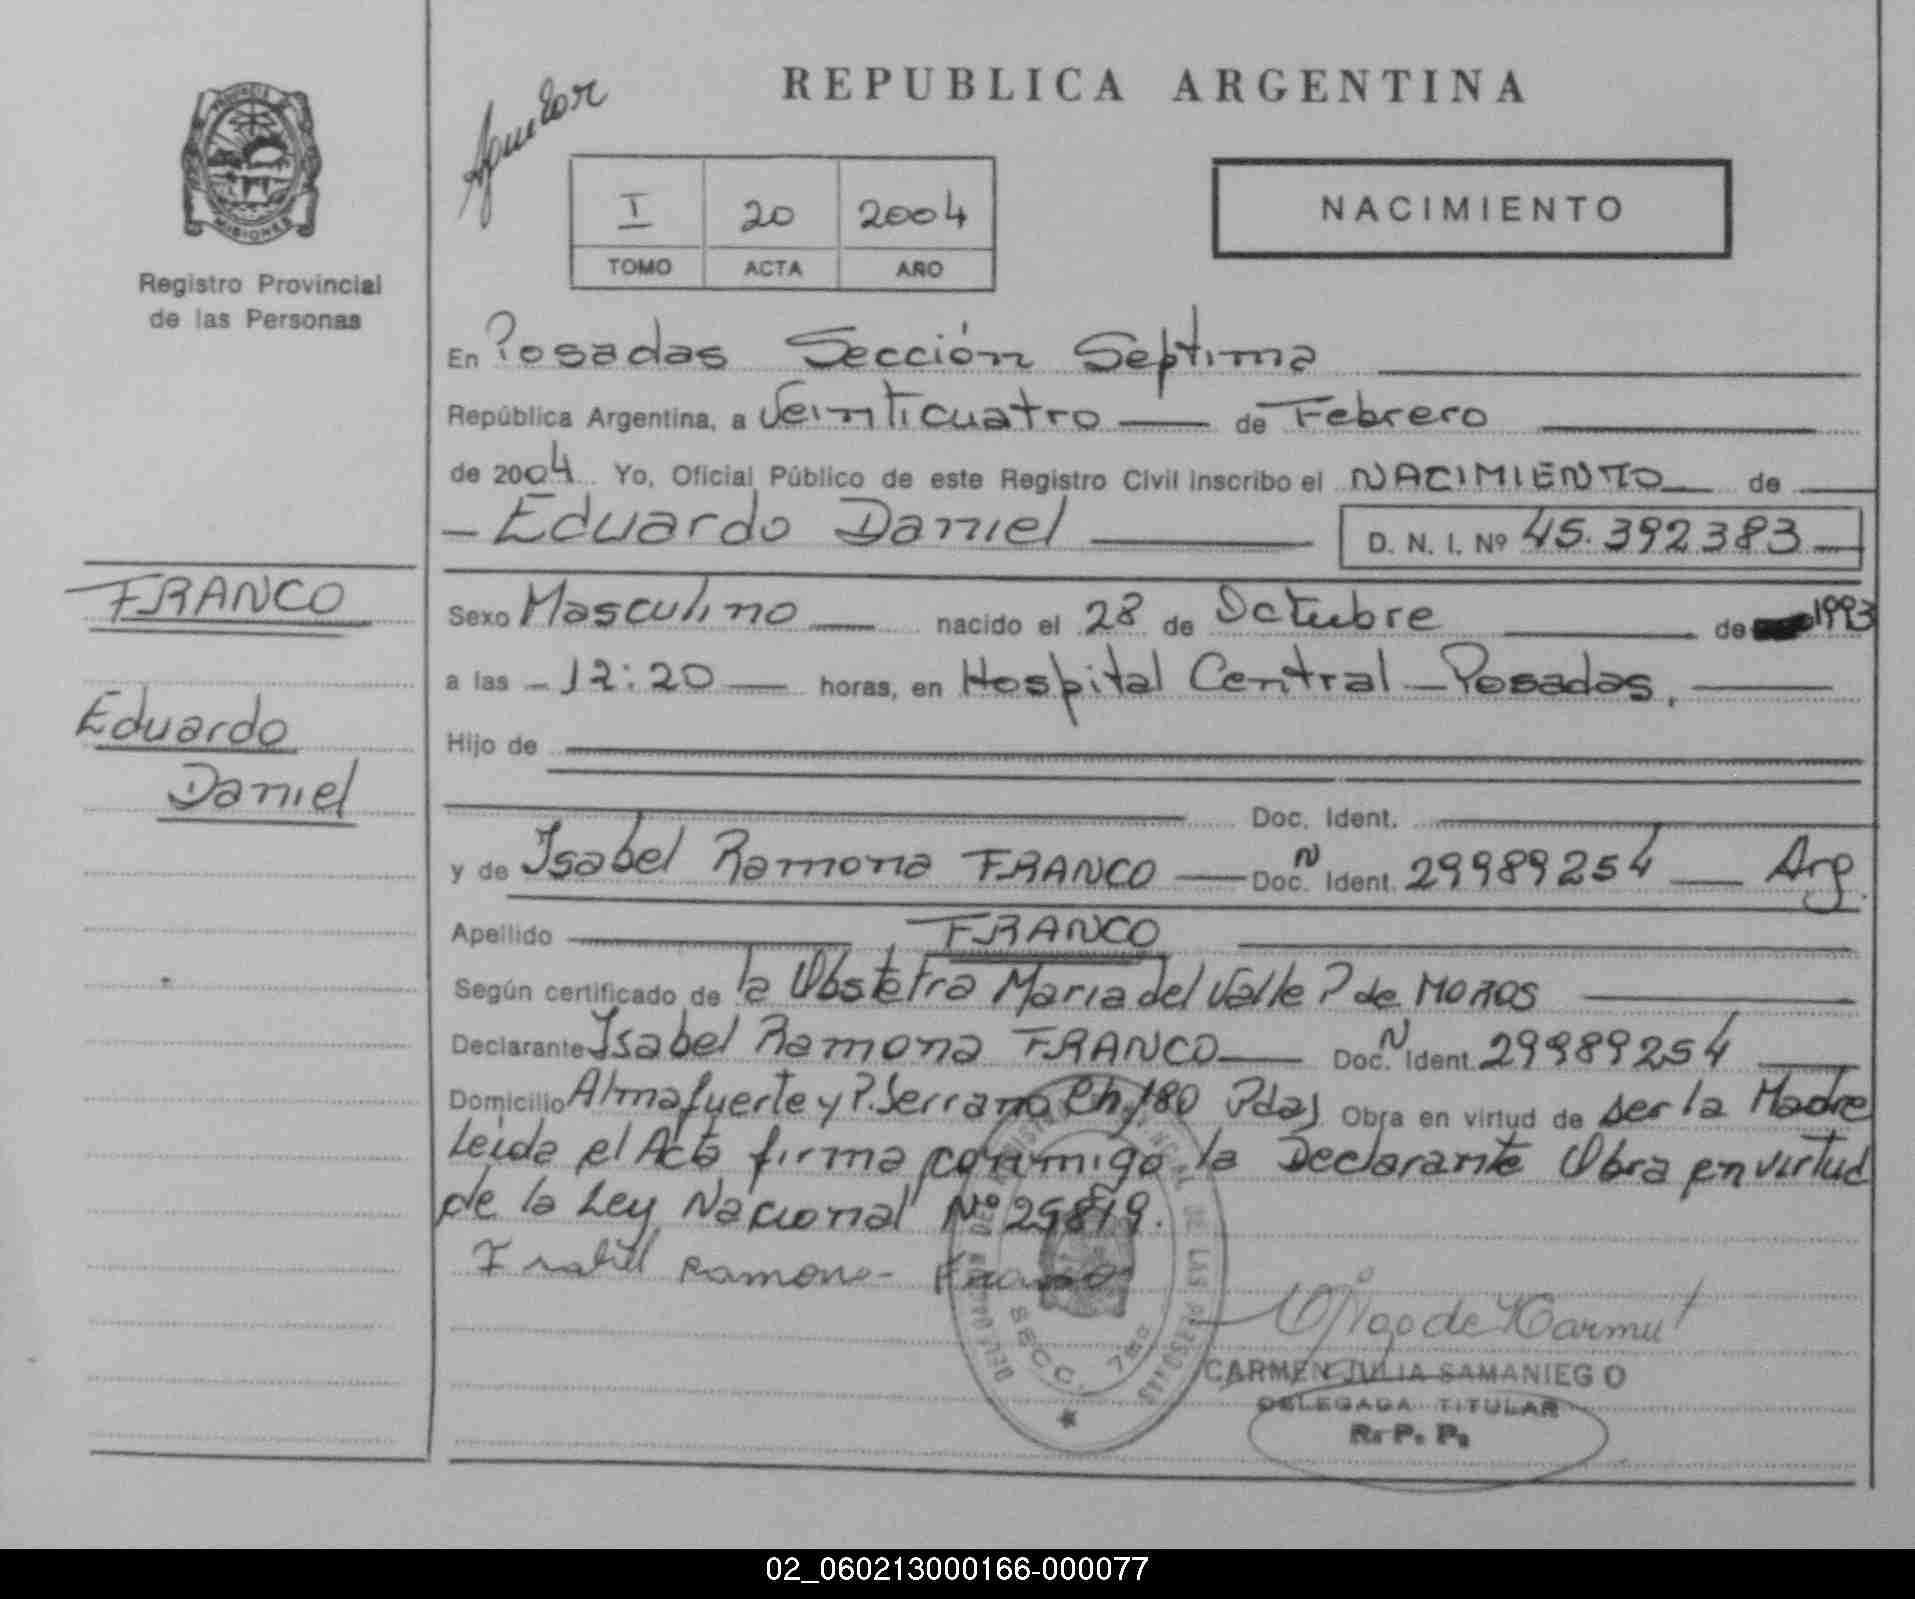 REPUBLICA ARGENTINA
PROVINCIA DE
MISIONES
Registro Provincial
de las Personas
I 20 2004
TOMO ACTA AÑO
NACIMIENTO
En Posadas Sección Septima
República Argentina, a Veinticuatro de Febrero
de 2004 Yo, Oficial Público de este Registro Civil inscribo el NACIMIENTO de
Eduardo Daniel D. N. I. Nº 45.392383
FRANCO
Eduardo
Daniel
Sexo Masculino nacido el 28 de Octubre de 1993
a las 12:20 horas, en Hospital Central - Posadas.
Hijo de
Doc. Ident.
y de Isabel Ramona FRANCO Doc. N Ident. 29989254 Arg.
Apellido FRANCO
Según certificado de la Obstetra Maria del Valle P de MOROS
Declarante Isabel Ramona FRANCO Doc. N Ident. 29989254
Domicilio Almafuerte y P. Serrano Ch. 180 Pdas Obra en virtud de ser la Madre
Leida el Acta firma conmigo la Declarante Obra en virtud
de la Ley Nacional Nº 25819.
Isabel Ramona Franco
SECC. 7ma
CARMEN JULIA SAMANIEGO
DELEGADA TITULAR
R. P. P.
02_060213000166-000077